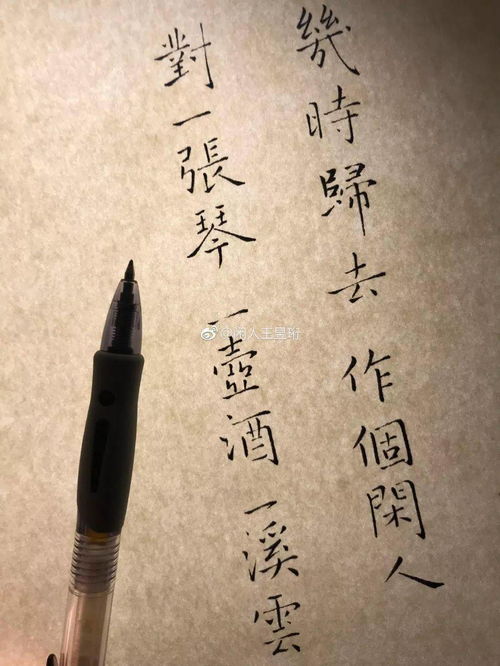 幾時歸去 作個閑人
對一張琴 一壺酒 一溪雲
@闲人王昱珩